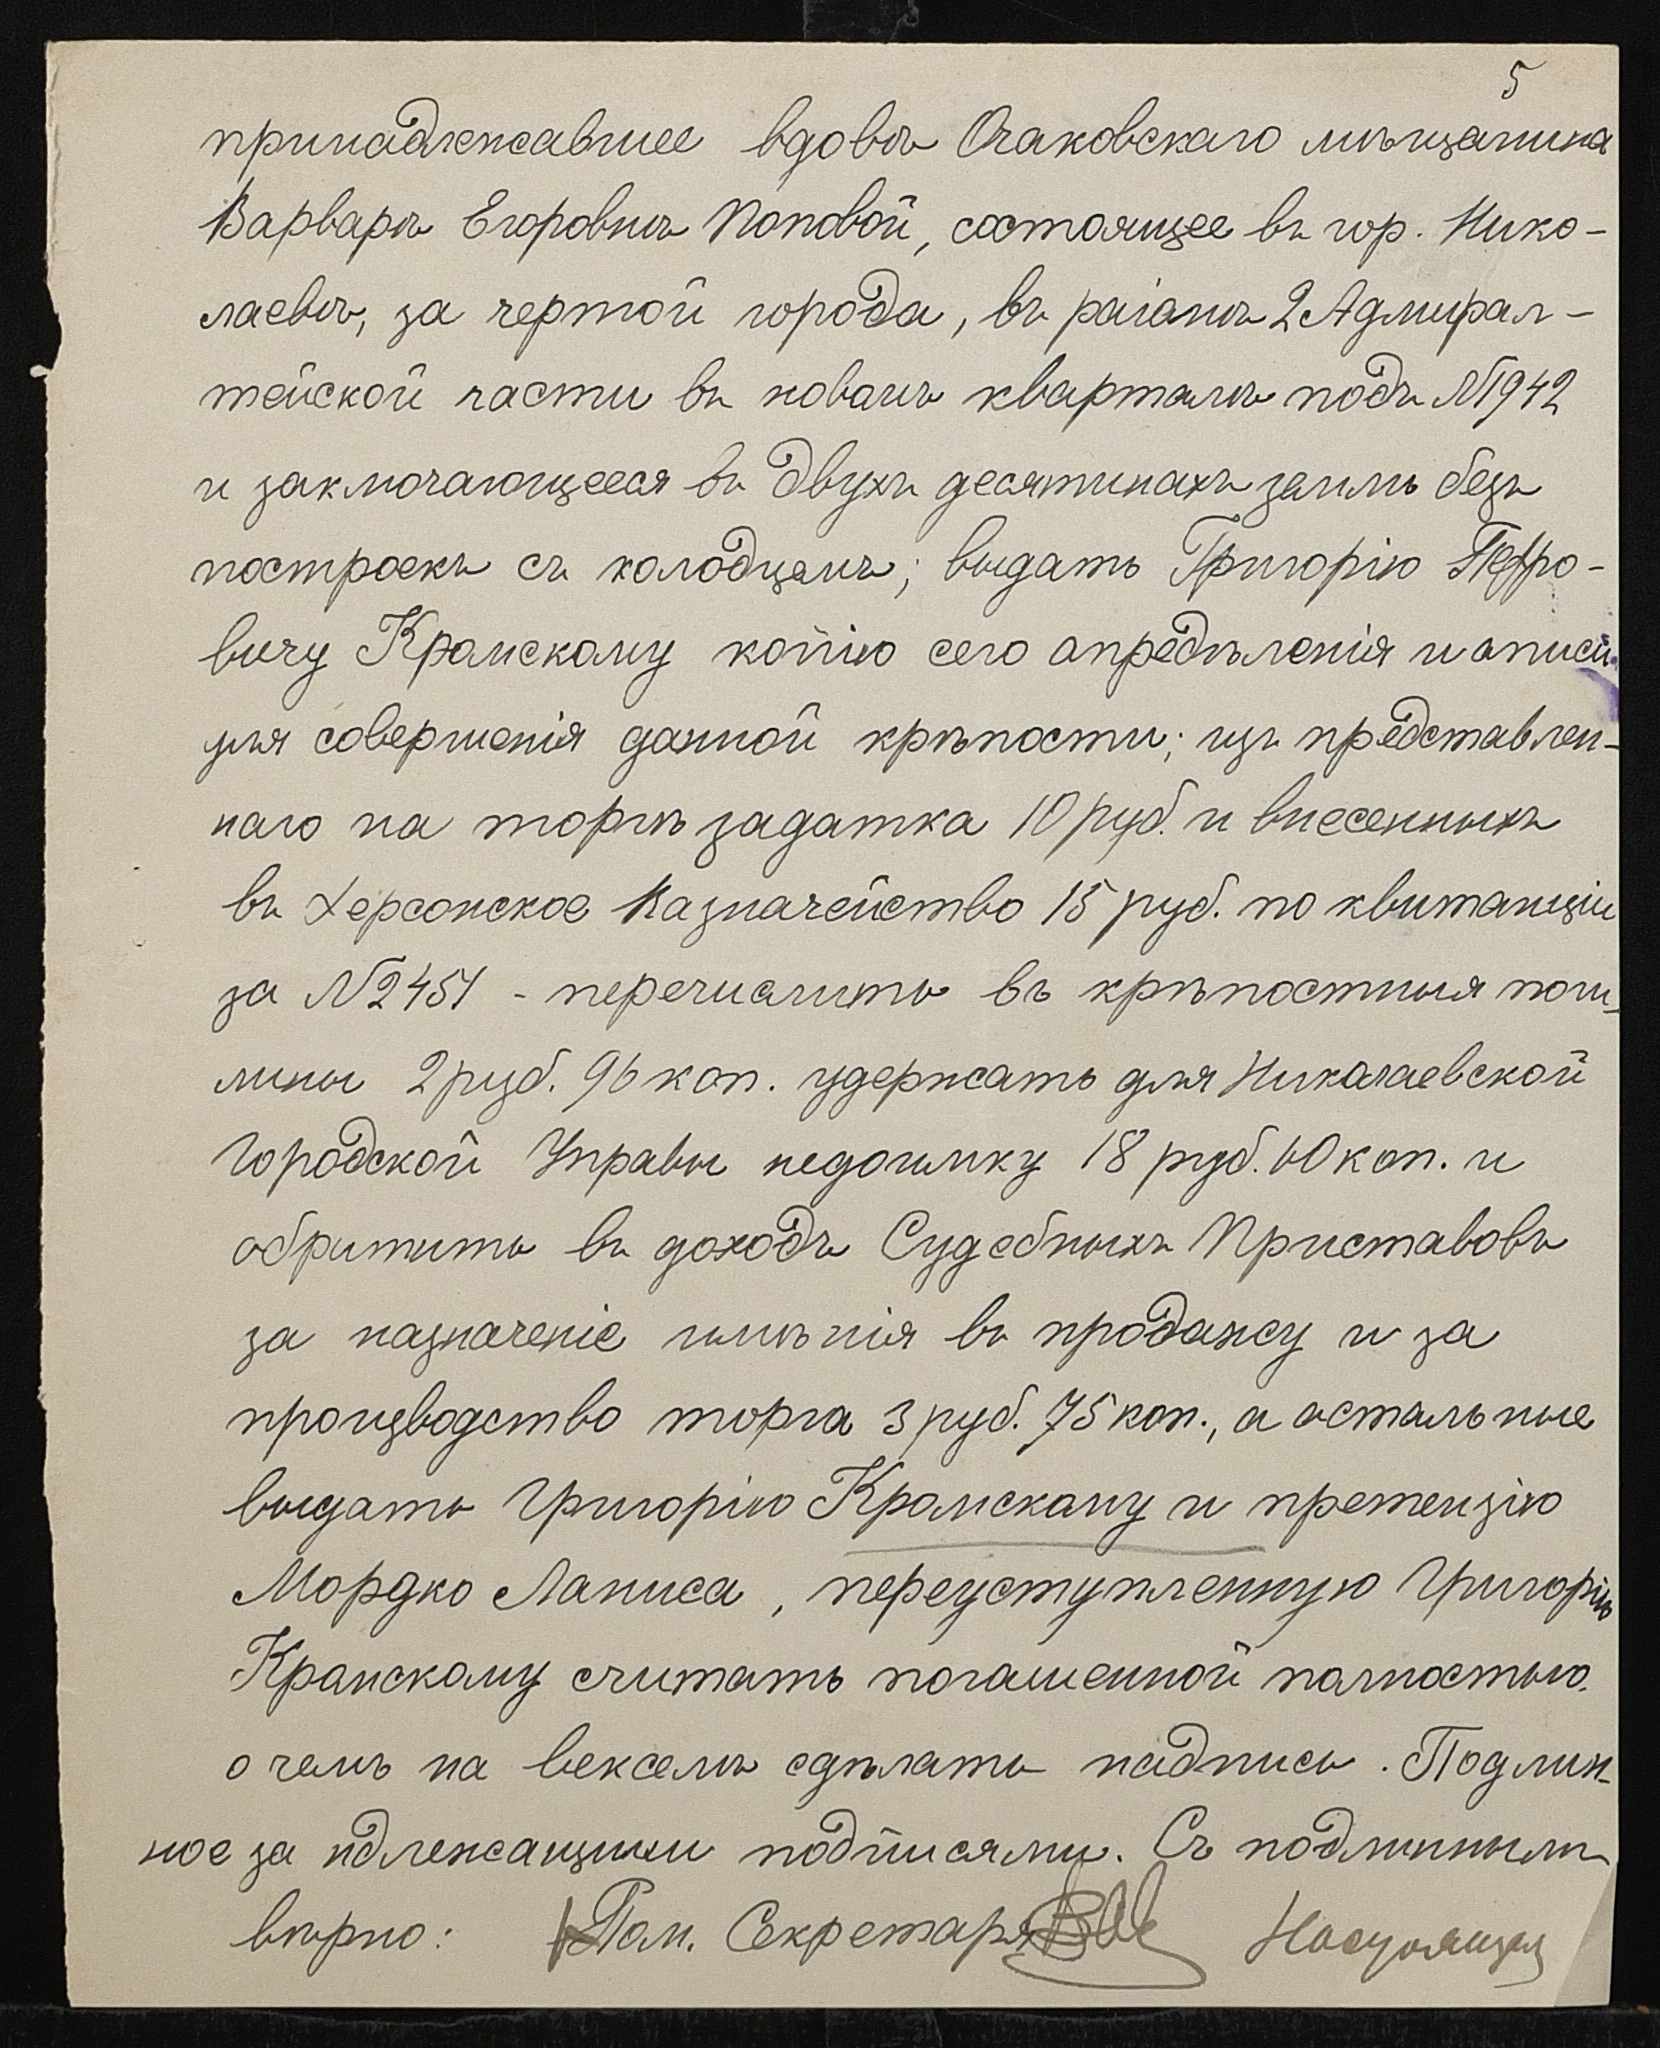 5
принадлежавшее вдовѣ Очаковскаго мѣщанина
Варварѣ Егоровнѣ Поповой, состоящее въ гор. Нико-
лаевѣ, за чертой города, въ раіонѣ 2 Адмирал-
тейской части въ новомъ кварталѣ подъ №1942
и заключающееся въ двухъ десятинахъ земли безъ
построекъ съ колодцемъ; выдать Григорію Петро-
вичу Крамскому копію сего опредѣленія и описи
для совершенія данной крѣпости; изъ представлен-
наго на торгѣ задатка 10 руб. и внесенныхъ
въ Херсонское Казначейство 15 руб. по квитанціи
за №2454 - перечислить въ крѣпостныя пош-
лины 2 руб. 96 коп. удержать для Николаевской
Городской Управы недоимку 18 руб. 60 коп. и
обратить въ доходъ Судебныхъ Приставовъ
за назначеніе имѣнія въ продажу и за
производство торга 3 руб. 75 коп., а остальные
выдать Григорію Крамскому и претензію
Мордко Лаписа, переуступленную Григорію
Крамскому считать погашенной полностью.
о чемъ на векселѣ сдѣлать надпись. Подлин-
ное за надлежащими подписями. Съ подлиннымъ
вѣрно: Пом. Секретаря